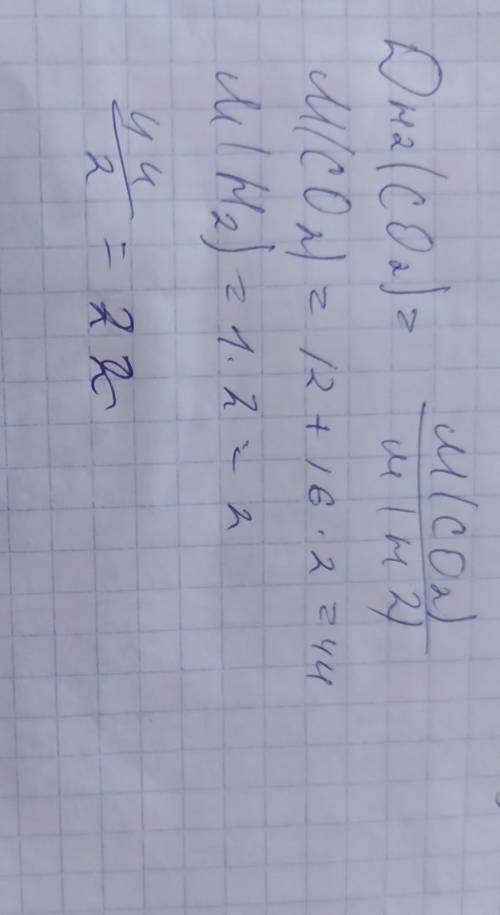 D H2 (CO2) = M(CO2) / M(H2)
M(CO2) = 12 + 16 · 2 = 44
M(H2) = 1 · 2 = 2
44 / 2 = 22